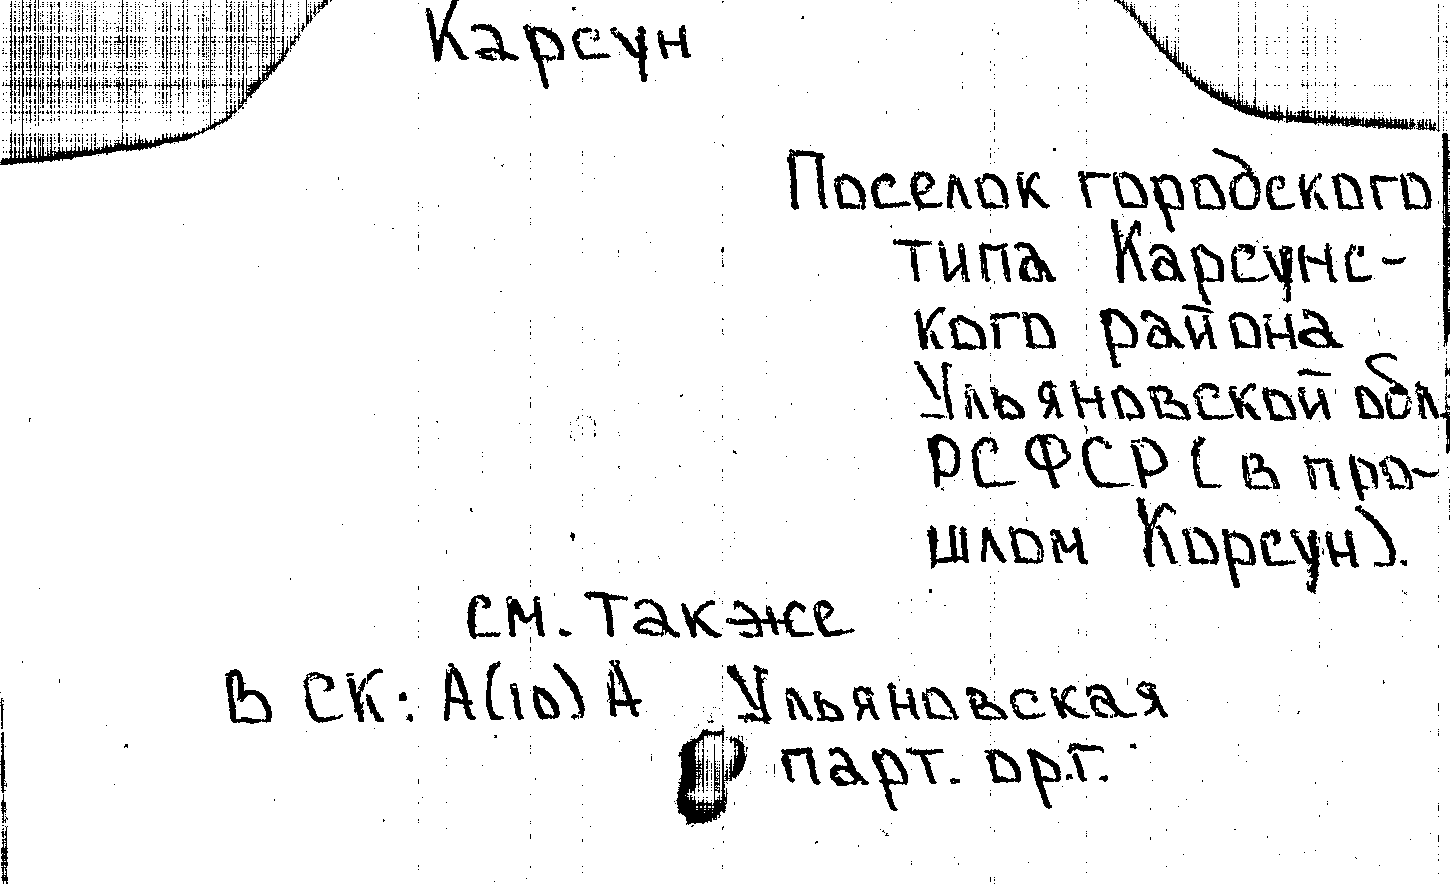 Карсун
Поселок городского
типа Карсунс-
кого района
Ульяновской обл.
РСФСР (в про-
шлом Корсун).
см. также
в СК: А(10)А Ульяновская
парт. орг.